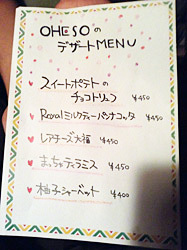 OHESOの
デザートMENU
スイートポテトの
チョコトリュフ ¥450
Royalミルクティーパンナコッタ ¥450
レアチーズ大福 ¥450
まっちゃティラミス ¥450
柚子シャーベット ¥400